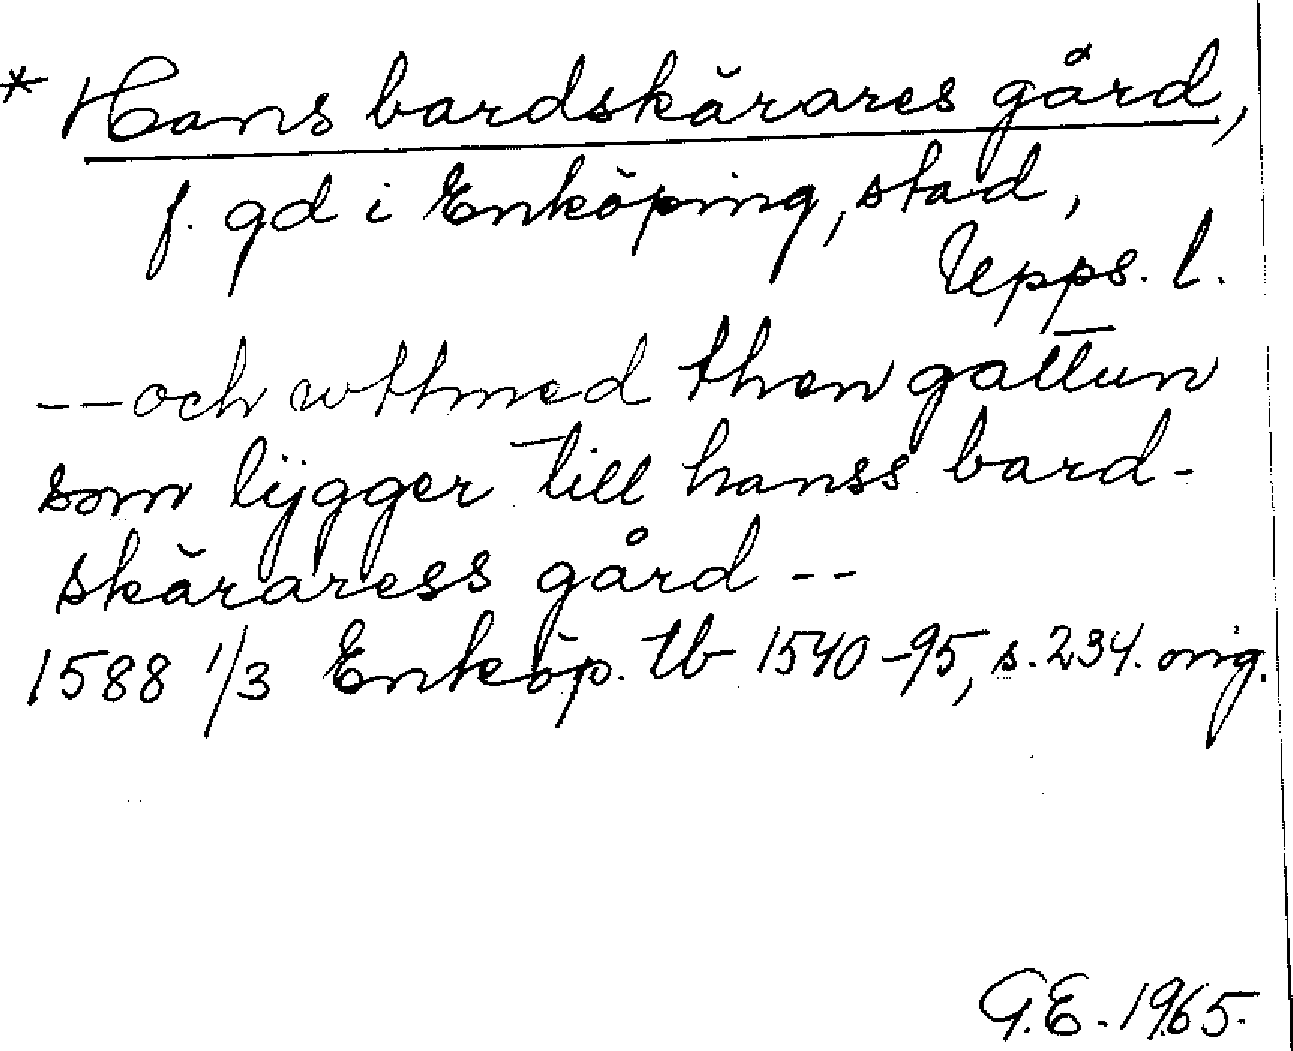 * Hans bardskärares gård,
f. gd i Enköping, stad,
Upps. l.
-- och wttmed then gattun
som lijgger till hanss bard-
skäraress gård --
1588 1/3 Enköp. tb 1540-95, s. 234. orig.
G.E. 1965.